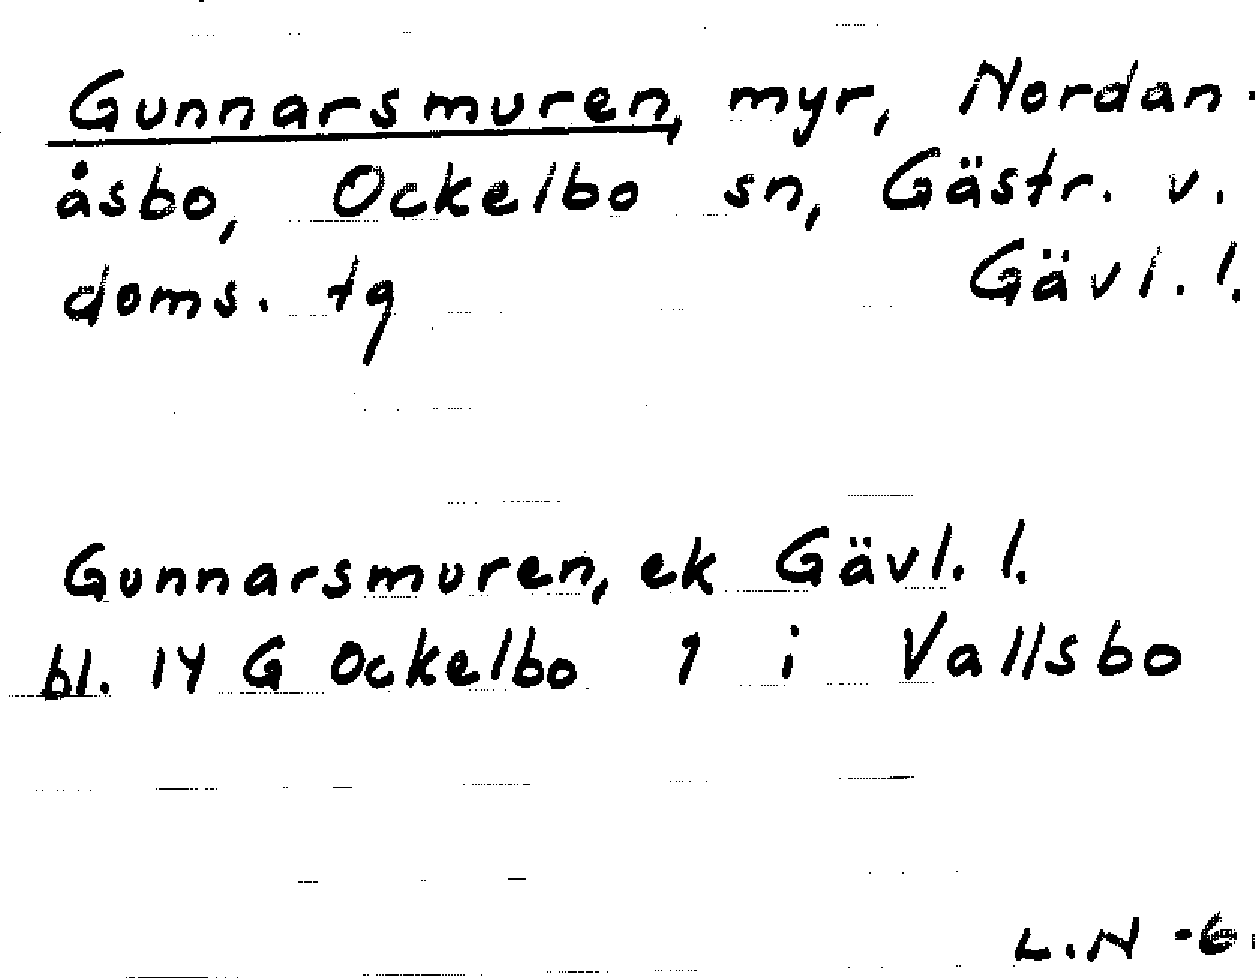 Gunnarsmuren, myr, Nordan-
åsbo, Ockelbo sn, Gästr. v.
doms. tg Gävl. l.
Gunnarsmuren, ek Gävl. l.
bl. 14 G Ockelbo 1 i Vallsbo
L.N -6